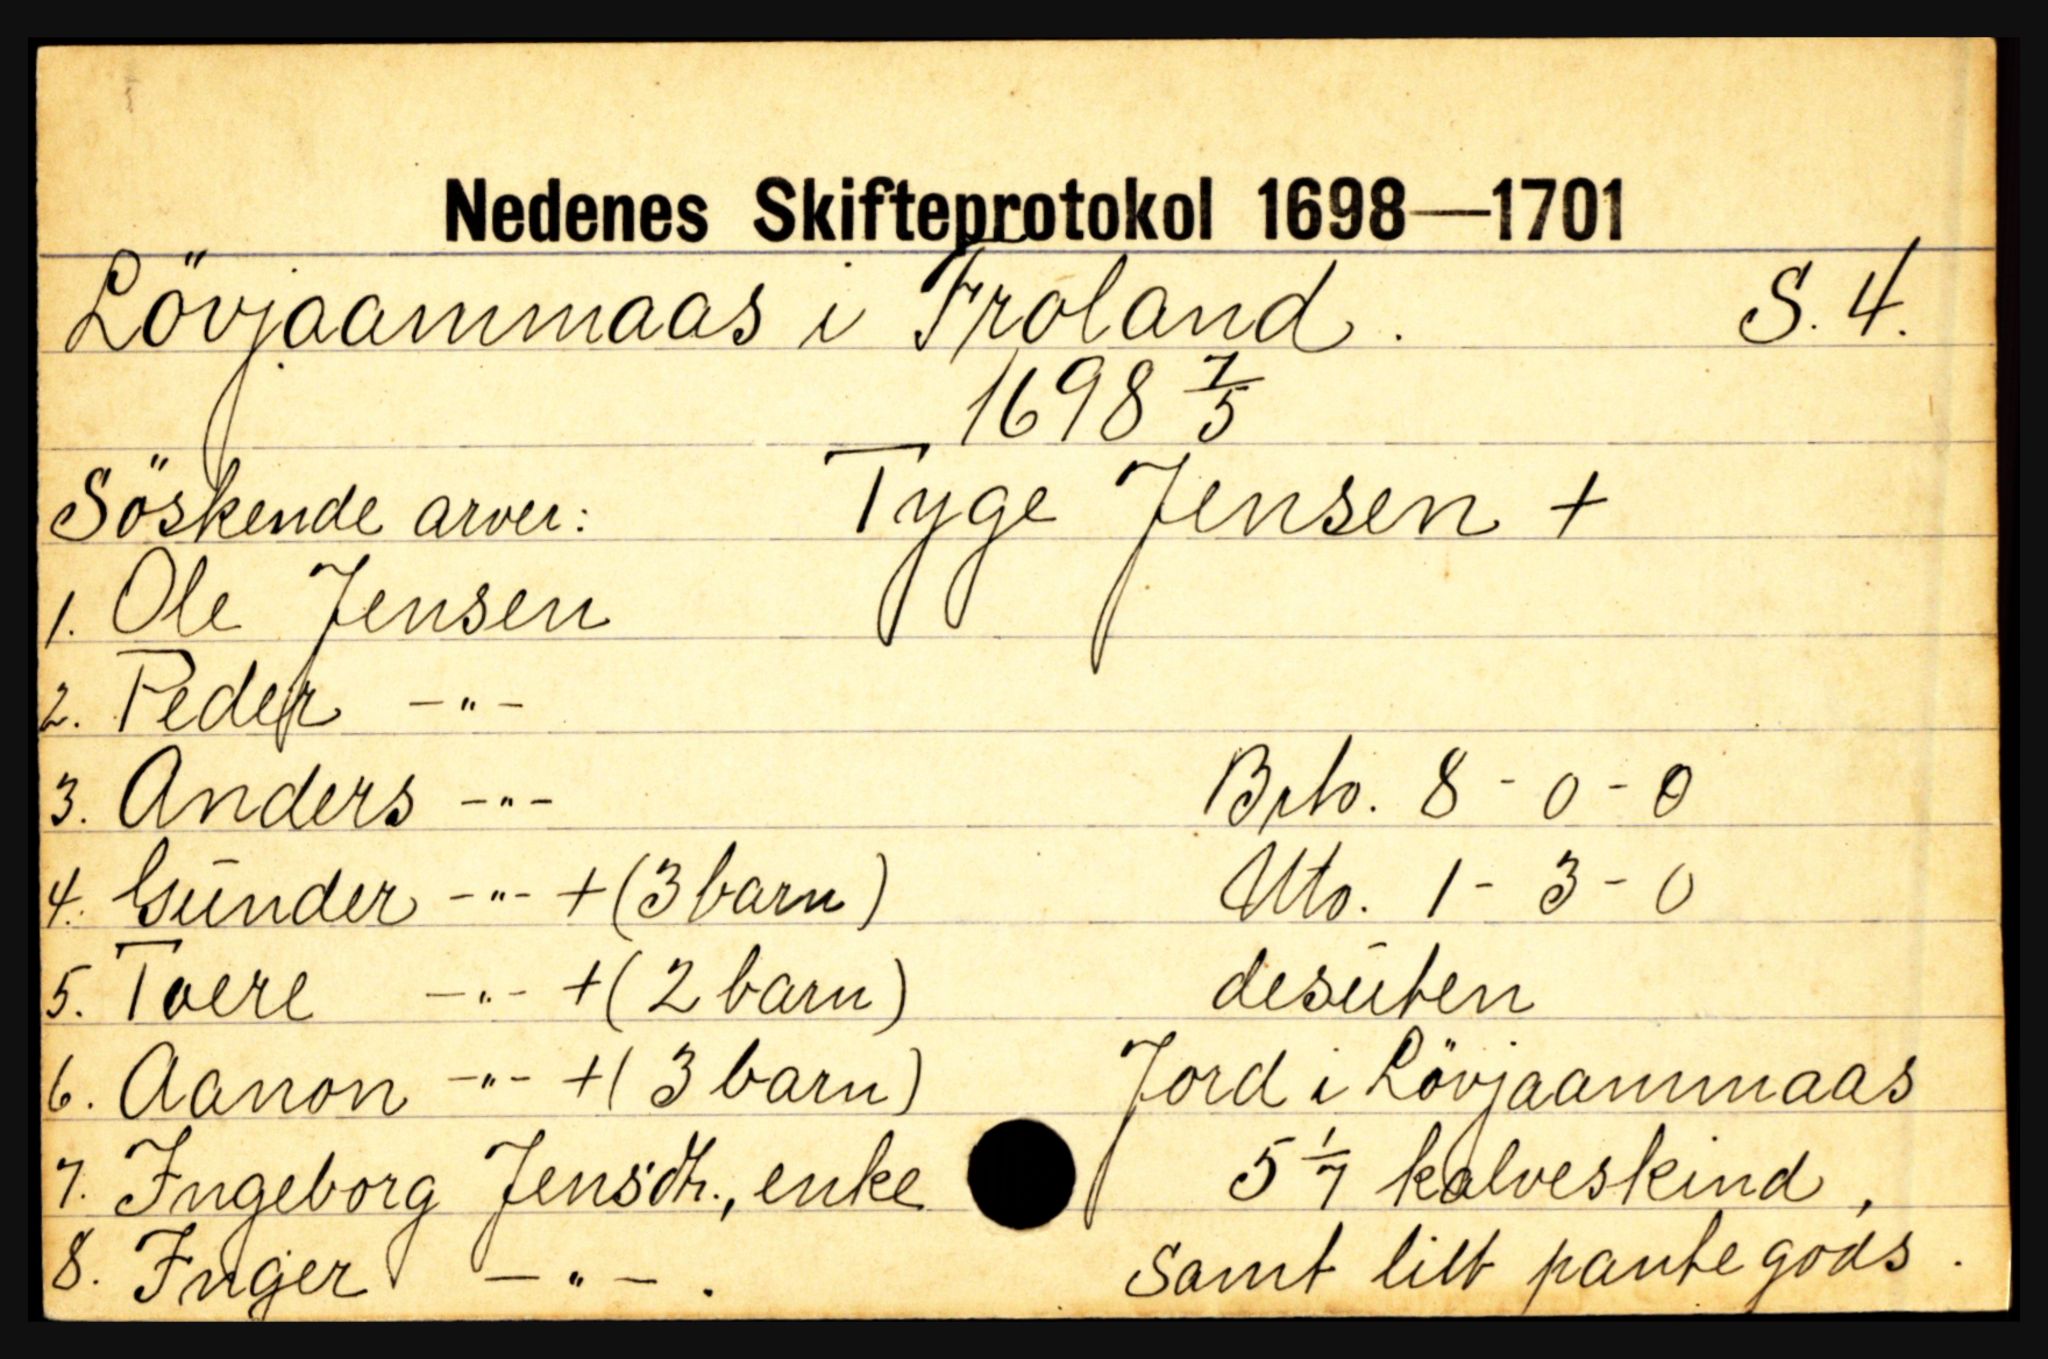 Nedenes Skifteprotokol 1698—1701
Lövjaammaas i Froland. S. 4.
1698 7/5
Söskende arver: Tyge Jensen +
1. Ole Jensen
2. Peder -"-
3. Anders -"- Brto. 8 - 0 - 0
4. Gūnder -"- + (3 barn) Nto. 1 - 3 - 0
5. Toere -"- + (2 barn) desūten
6. Aanon -"- + (3 barn) Jord i Lövjaammaas
7. Ingeborg Jensdtr., enke 5 1/7 kalveskind,
8. Inger -"-. samt litt pantegods.